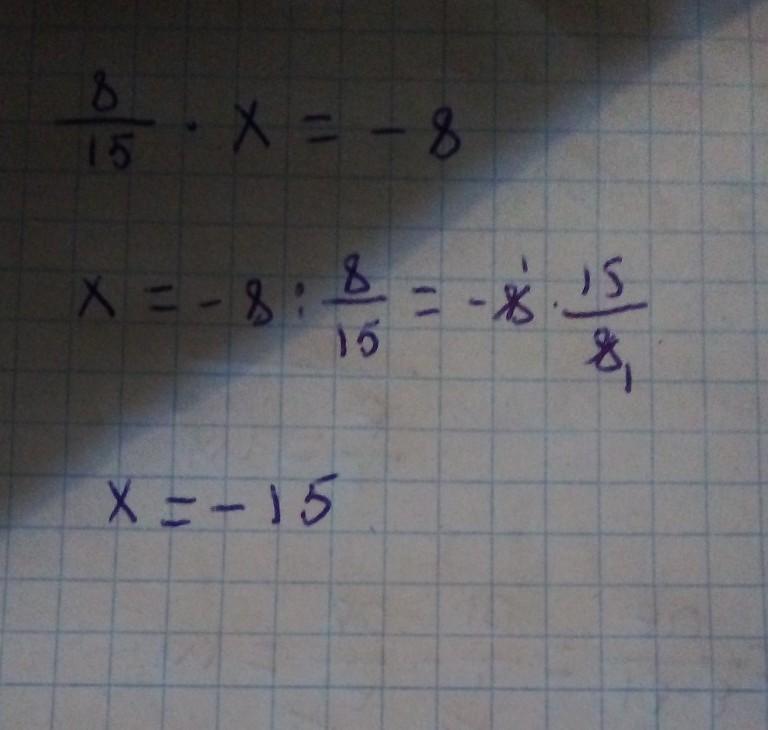 8/15 · x = - 8
x = - 8 : 8/15 = - 8¹ · 15/8₁
x = - 15